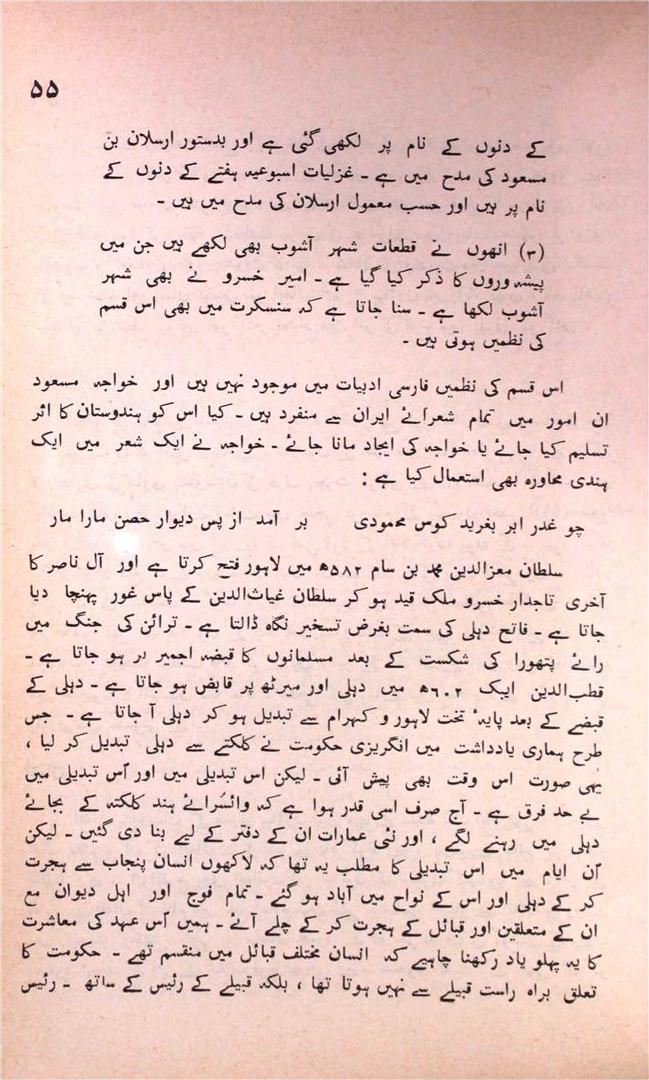 ۵۵
کے دنوں کے نام پر لکھی گئی ہے اور بدستور ارسلان بن
مسعود کی مدح میں ہے ۔ غزلیات اسبوعیہ ہفتے کے دنوں کے
نام پر ہیں اور حسب معمول ارسلان کی مدح میں ہیں ۔
(۳) انھوں نے قطعات شہر آشوب بھی لکھے ہیں جن میں
پیشہ وروں کا ذکر کیا گیا ہے ۔ امیر خسرو نے بھی شہر
آشوب لکھا ہے ۔ سنا جاتا ہے کہ سنسکرت میں بھی اس قسم
کی نظمیں ہوتی ہیں ۔
اس قسم کی نظمیں فارسی ادبیات میں موجود نہیں ہیں اور خواجہ مسعود
ان امور میں تمام شعرائے ایران سے منفرد ہیں ۔ کیا اس کو ہندوستان کا اثر
تسلیم کیا جائے یا خواجہ کی ایجاد مانا جائے ۔ خواجہ نے ایک شعر میں ایک
ہندی محاورہ بھی استعمال کیا ہے :
چو غدر ابر بغرید کوس محمودی بر آمد از پس دیوار حصن مارا مار
سلطان معزالدین محمد بن سام ۵۸۲ھ میں لاہور فتح کرتا ہے اور آل ناصر کا
آخری تاجدار خسرو ملک قید ہو کر سلطان غیاث‌الدین کے پاس غور پہنچا دیا
جاتا ہے ۔ فاتح دہلی کی سمت بغرض تسخیر نگاہ ڈالتا ہے ۔ ترائن کی جنگ میں
رائے پتھورا کی شکست کے بعد مسلمانوں کا قبضہ اجمیر پر ہو جاتا ہے ۔
قطب‌الدین ایبک ۶۰۲ھ میں دہلی اور میرٹھ پر قابض ہو جاتا ہے ۔ دہلی کے
قبضے کے بعد پایۂ تخت لاہور و کہرام سے تبدیل ہو کر دہلی آ جاتا ہے ۔ جس
طرح ہماری یادداشت میں انگریزی حکومت نے کلکتے سے دہلی تبدیل کر لیا ،
یہی صورت اس وقت بھی پیش آئی ۔ لیکن اس تبدیلی میں اور اُس تبدیلی میں
بے حد فرق ہے ۔ آج صرف اسی قدر ہوا ہے کہ وائسرائے ہند کلکتہ کے بجائے
دہلی میں رہنے لگے ، اور نئی عمارات ان کے دفتر کے لیے بنا دی گئیں ۔ لیکن
اُن ایام میں اس تبدیلی کا مطلب یہ تھا کہ لاکھوں انسان پنجاب سے ہجرت
کر کے دہلی اور اس کے نواح میں آباد ہو گئے ۔ تمام فوج اور اہل دیوان مع
ان کے متعلقین اور قبائل کے ہجرت کر کے چلے آئے ۔ ہمیں اُس عہد کی معاشرت
کا یہ پہلو یاد رکھنا چاہیے کہ انسان مختلف قبائل میں منقسم تھے ۔ حکومت کا
تعلق براہ راست قبیلے سے نہیں ہوتا تھا ، بلکہ قبیلے کے رئیس کے ساتھ ۔ رئیس